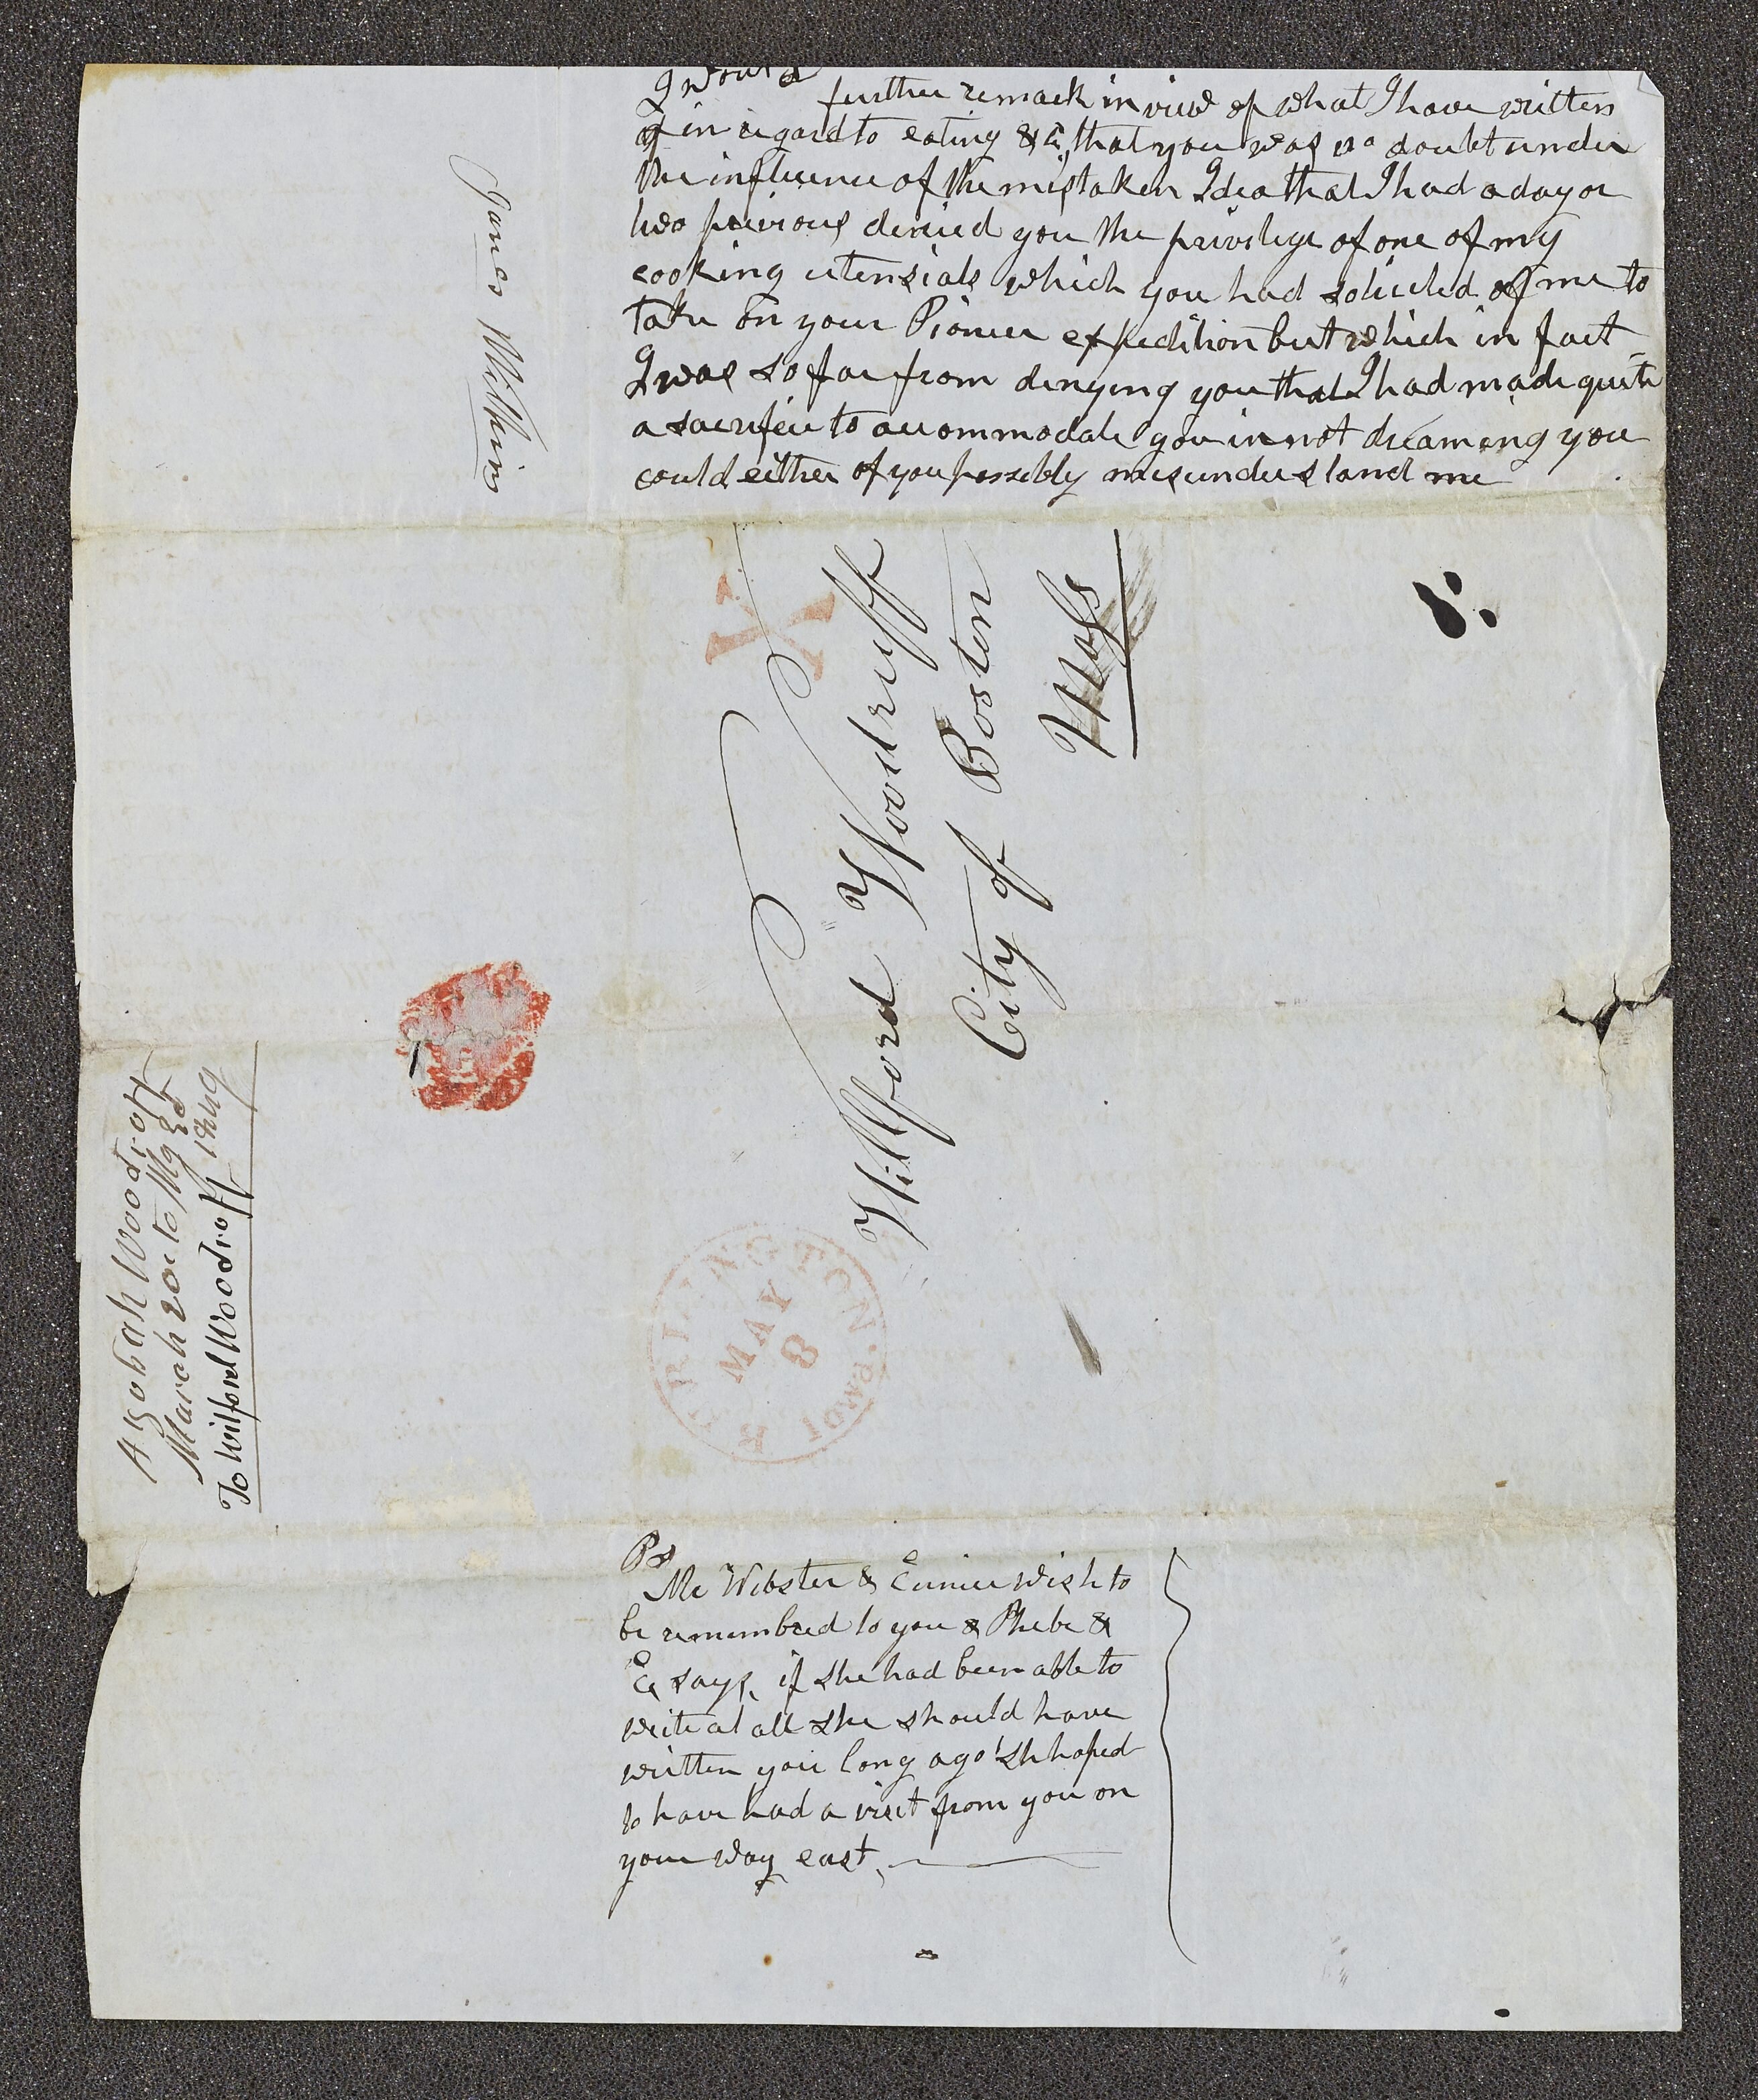 I would
further remark in view of what I have written
in regard to eating &c, that you was no doubt under
the influence of the mistaken Idea that I had a day or
two previous denied you the privilege of one of my
cooking utensials which you had solicited of me to
take on your Pioneer expedition but which in fact
I was so far from denying you that I had made quite
a sacrifice to accommodate you in not dreaming you
could either of you possibly misunderstand me
James Wilkins
X
Willford Woodruff
City of Boston
Mass
BURLINGTON IOWA
MAY
8
Azohah Woodroff
March 20 to
1849
To Wilford Woodroff
Ps
Mr Webster & Eunice wish to
be remembred to you & Phebe &
E, says, if she had been able to
write at all she should have
written you long ago sh hoped
to have had a visit from you on
your way east,